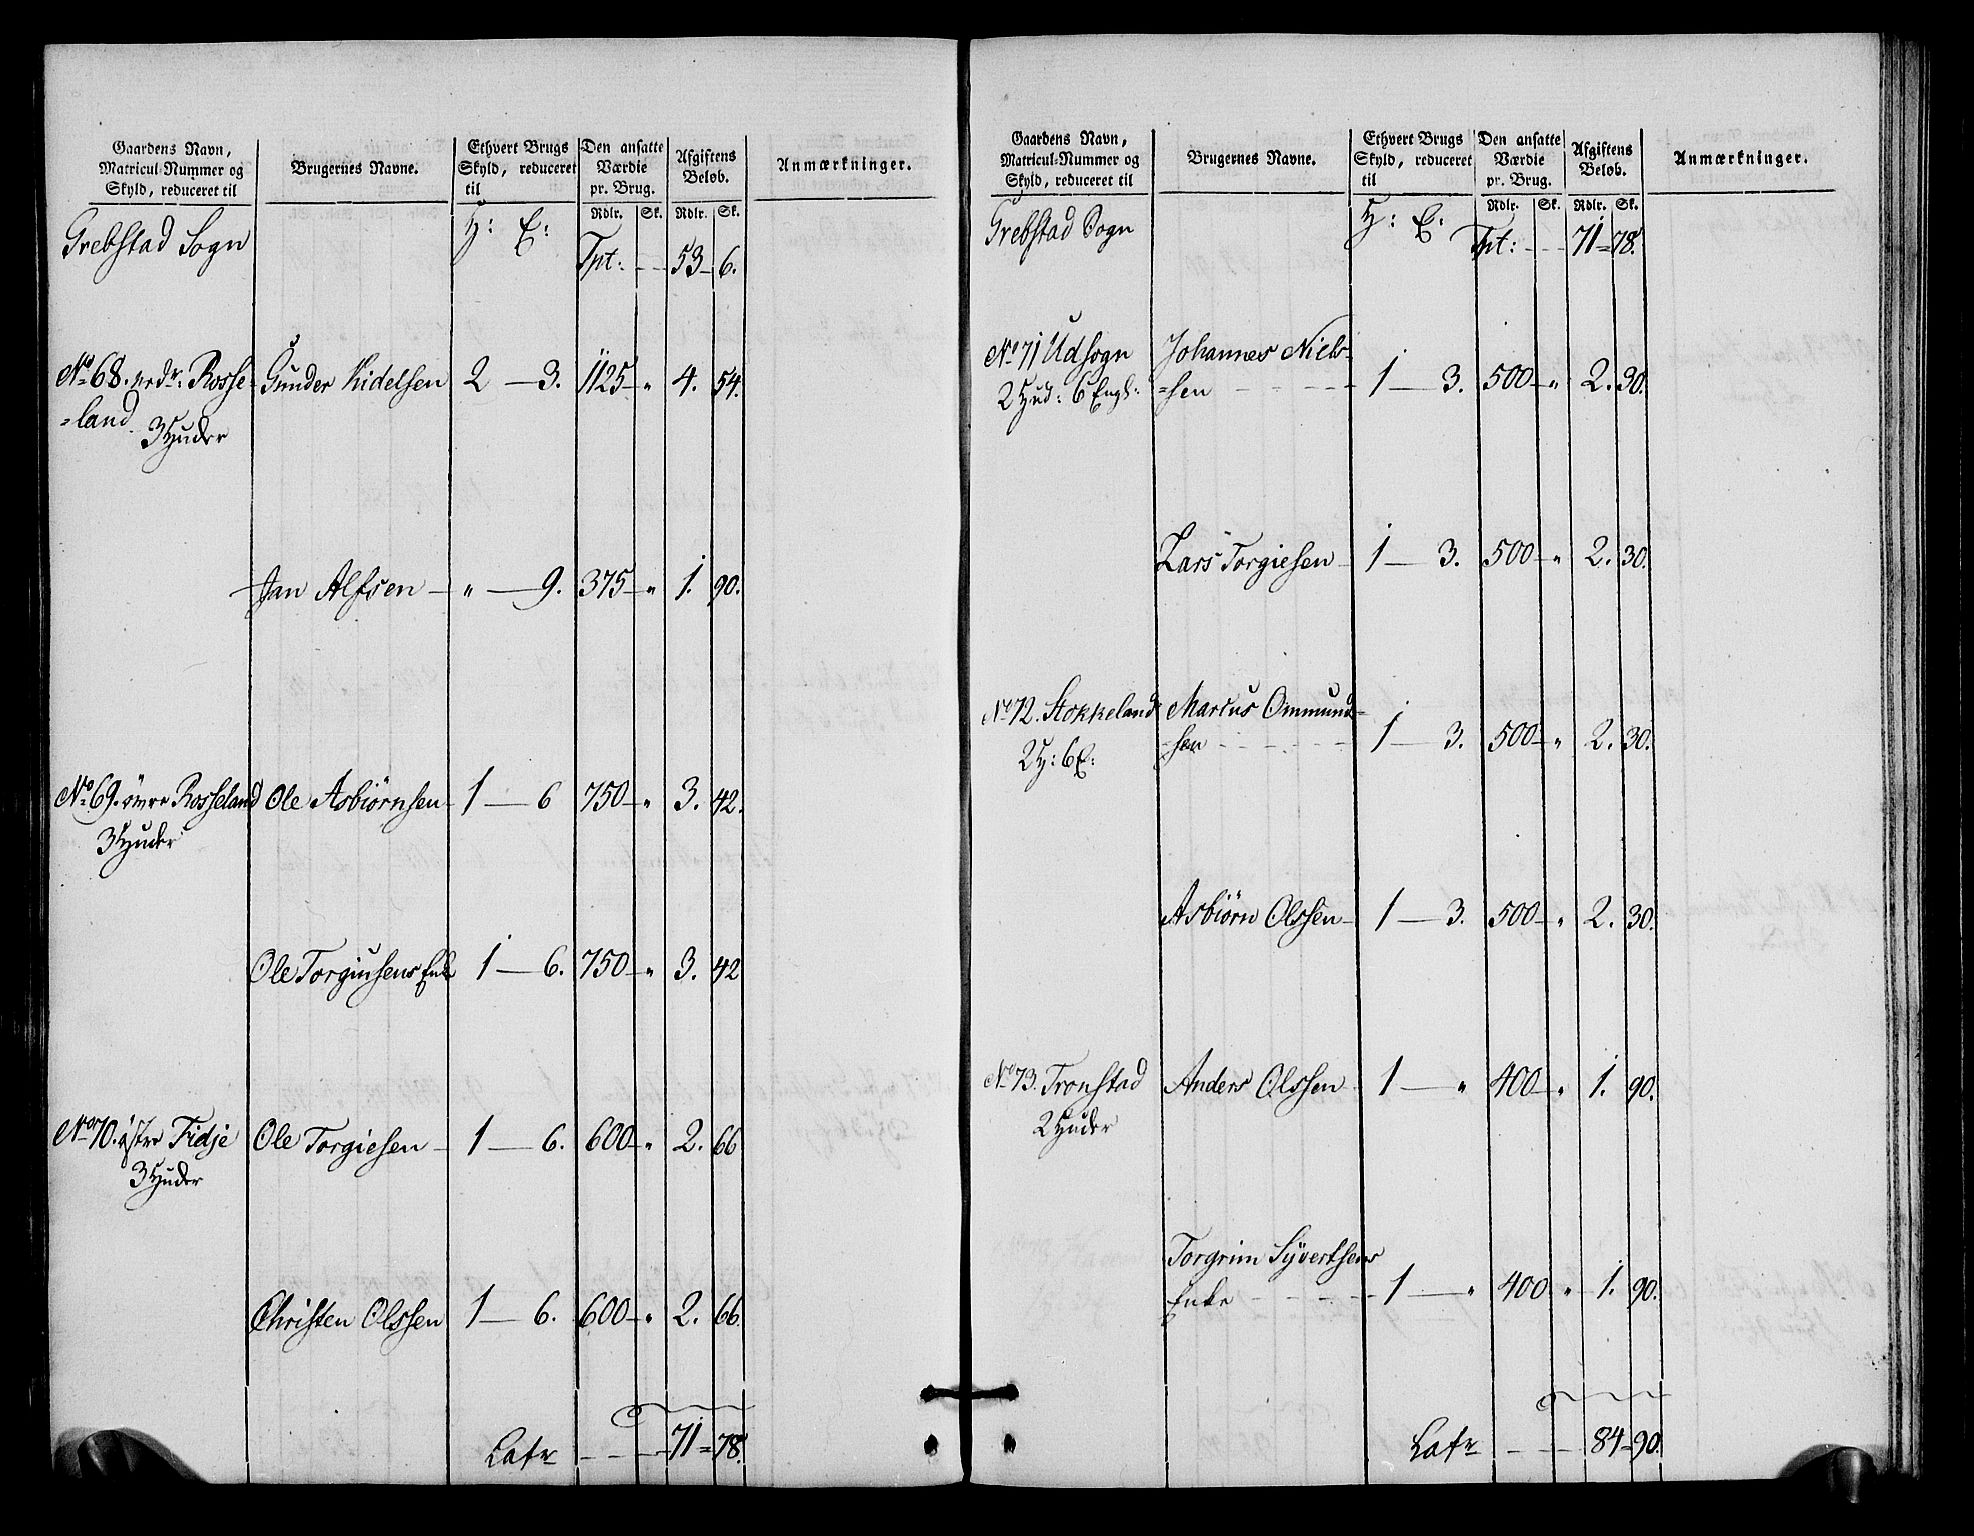 Gaardens Navn, Matricul-Nummer og Skyld, reduceret til | Brugernes Navne. | Ethvert Brugs Skyld, reduceret til | Den ansatte Værdie pr. Brug. | Afgiftens Beløb. | Anmærkninger.
Rdlr. Sk. Rdlr. Sk.
Grebstad Sogn H: E: Tpt: 53 6.
No 68. nedr: Rosse- Gunder Kidelsen 2 3. 1125 " 4. 54.
=land
3 Huder
Jan Alfsen " 9. 375 " 1. 90.
No 69. öwre Rosseland Ole Asbiørnsen 1 6 750 " 3. 42.
3 Huder
Ole Torgiusens Enke 1 6. 750 " 3. 42
No 70. östre Fidje Ole Torgiesen 1 6. 600 " 2. 66
3 Huder
Christen Olssen 1 6. 600 " 2. 66.
Latr 71 = 78.
Gaardens Navn, Matricul-Nummer og Skyld, reduceret til | Brugernes Navne. | Ethvert Brugs Skyld, reduceret til | Den ansatte Værdie pr. Brug. | Afgiftens Beløb. | Anmærkninger.
Rdlr. Sk. Rdlr. Sk.
Grebstad Sogn H: E: Tpt: 71 = 78.
No 71 Udsogn Johannes Niels-
2 Hud: 6 Engl: =sen 1 3. 500 " 2. 30.
Lars Torgiesen 1 3. 500 " 2. 30.
No 72. Stokkeland Marcus Ommund-
2 H: 6 E: =sen 1 3. 500 " 2. 30.
Asbiörn Olssen 1 3. 500 " 2. 30.
No 73. Tronstad Anders Olssen 1 " 400 " 1. 90.
2 Huder
Torgrim Syvertsens
Enke 1 " 400 " 1. 90.
Latr 84 = 90.